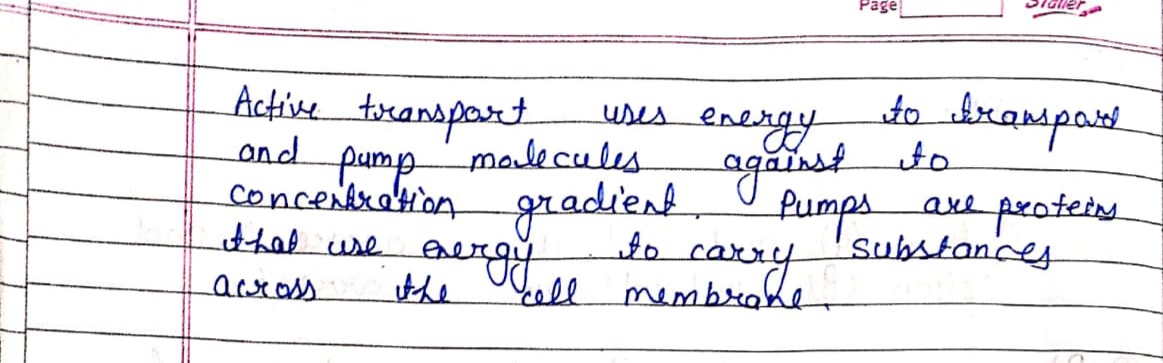 Page
Active transport uses energy to transport
and pump molecules against to
concentration gradient. Pumps are proteins
that use energy to carry substances
across the cell membrane.